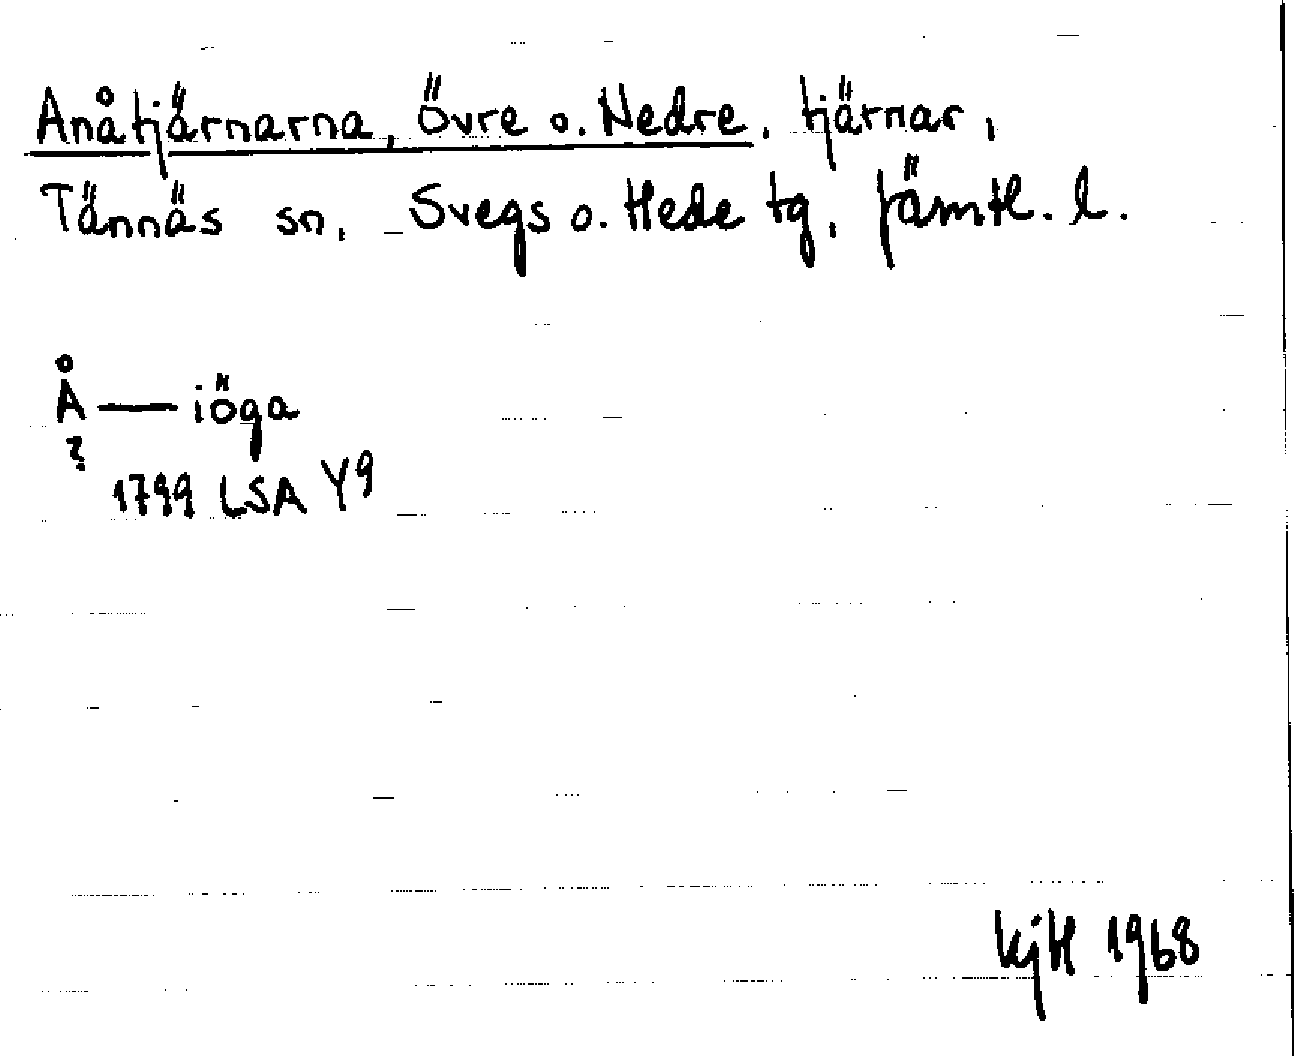 Anåtjärnarna, Övre o. Nedre, tjärnar,
Tännäs sn, Svegs o. Hede tg, Jämtl. l.
Å — iöga
?
1799 LSA Y9
KjH 1968